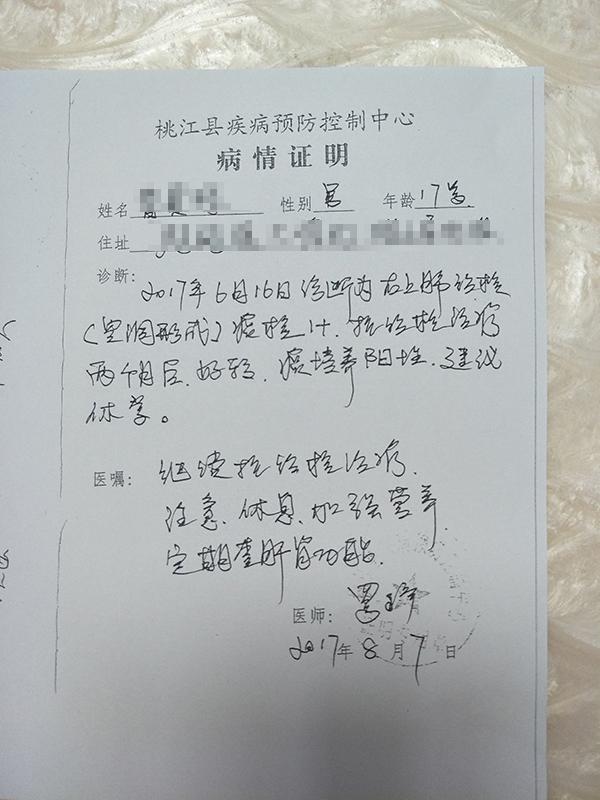 桃江县疾病预防控制中心
病情证明
姓名 性别 男 年龄 17岁
住址
诊断: 2017年6月16日诊断为右上肺结核
(空洞形成)痰检1+. 抗结核治疗
两个月后, 好转. 痰培养阳性. 建议
休学。
医嘱: 继续抗结核治疗.
注意、休息, 加强营养
定期查肝肾功能.
医师:
2017年8月7日